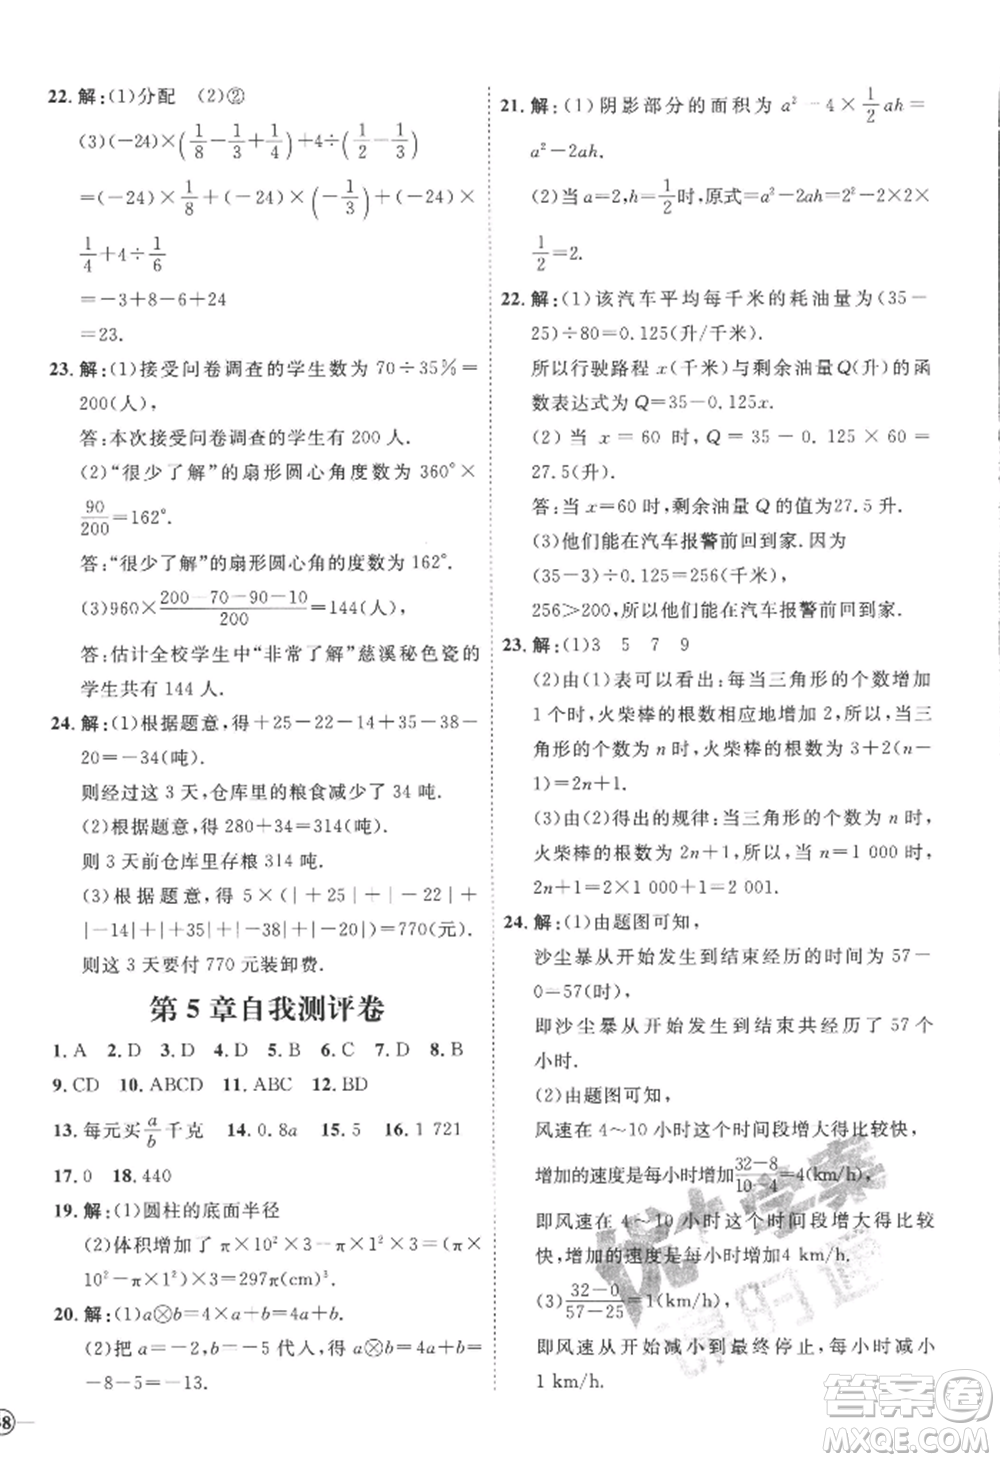 22. 解:(1)分配 (2)②
(3)(−24)×(1/8−1/3+1/4)+4÷(1/2−1/3)
=(−24)×1/8+(−24)×(−1/3)+(−24)×
1/4+4÷1/6
=−3+8−6+24
=23.
23. 解:(1)接受问卷调查的学生数为 70÷35%=
200(人),
答:本次接受问卷调查的学生有 200 人.
(2)“很少了解”的扇形圆心角度数为 360°×
90/200=162°.
答:“很少了解”的扇形圆心角的度数为 162°.
(3)960×(200−70−90−10)/200=144(人),
答:估计全校学生中“非常了解”慈溪秘色瓷的
学生共有 144 人.
24. 解:(1)根据题意,得+25−22−14+35−38−
20=−34(吨).
则经过这 3 天,仓库里的粮食减少了 34 吨.
(2)根据题意,得 280+34=314(吨).
则 3 天前仓库里存粮 314 吨.
(3)根据题意,得 5×(|+25|+|−22|+
|−14|+|+35|+|−38|+|−20|)=770(元).
则这 3 天要付 770 元装卸费.
第 5 章自我测评卷
1. A 2. D 3. D 4. D 5. B 6. C 7. D 8. B
9. CD 10. ABCD 11. ABC 12. BD
13. 每元买a/b千克 14. 0.8a 15. 5 16. 1 721
17. 0 18. 440
19. 解:(1)圆柱的底面半径
(2)体积增加了 π×10²×3−π×10²=2π×
10²−π×1²=297π(cm)³.
20. 解:(1)a⊗b=4×a+b=4a+b.
(2)把 a=−2,b=−5 代人,得 a⊗b=4a+b=
−8−5=−13.
21. 解:(1)阴影部分的面积为 a²−4×1/2ah=
a²−2ah.
(2)当 a=2,h=1/2时,原式=a²−2ah=2²−2×2×
1/2=2.
22. 解:(1)该汽车平均每千米的耗油量为(35−
25)÷80=0.125(升/千米).
所以行驶路程 x(千米)与剩余油量Q(升)的函
数表达式为 Q=35−0.125x.
(2)当 x=60 时,Q=35−0.125×60=
27.5(升).
答:当 x=60 时,剩余油量 Q 的值为27.5 升.
(3)他们能在汽车报警前回到家.因为
(35−3)÷0.125=256(千米),
256>200,所以他们能在汽车报警前回到家.
23. 解:(1)3 5 7 9
(2)由(1)表可以看出:每当三角形的个数增加
1 个时,火柴棒的根数相应地增加 2,所以当三
角形的个数为 n 时,火柴棒的根数为 3+2(n−
1)=2n+1.
(3)由(2)得出的规律:当三角形的个数为 n 时,
火柴棒的根数为 2n+1,当 n=1 000 时,
2n+1=2×1 000+1=2 001.
24. 解:(1)由题图可知,
沙尘暴从开始发生到结束经历的时间为 57−
0=57(时),
即沙尘暴从开始发生到结束共经历了 57 个
小时.
(2)由题图可知,
风速在 4~10 小时这个时间段增大得比较快,
增加的速度是每小时增加(32−8)/(10−4)=4(km/h),
即风速在 4~10 小时这个时间段增大得比较
快,增加的速度是每小时增加4 km/h.
(3)(32−0)/(57−25)=1(km/h),
即风速从开始减小到最终停止,每小时减小
1 km/h.
答案卷
MXQE.COM